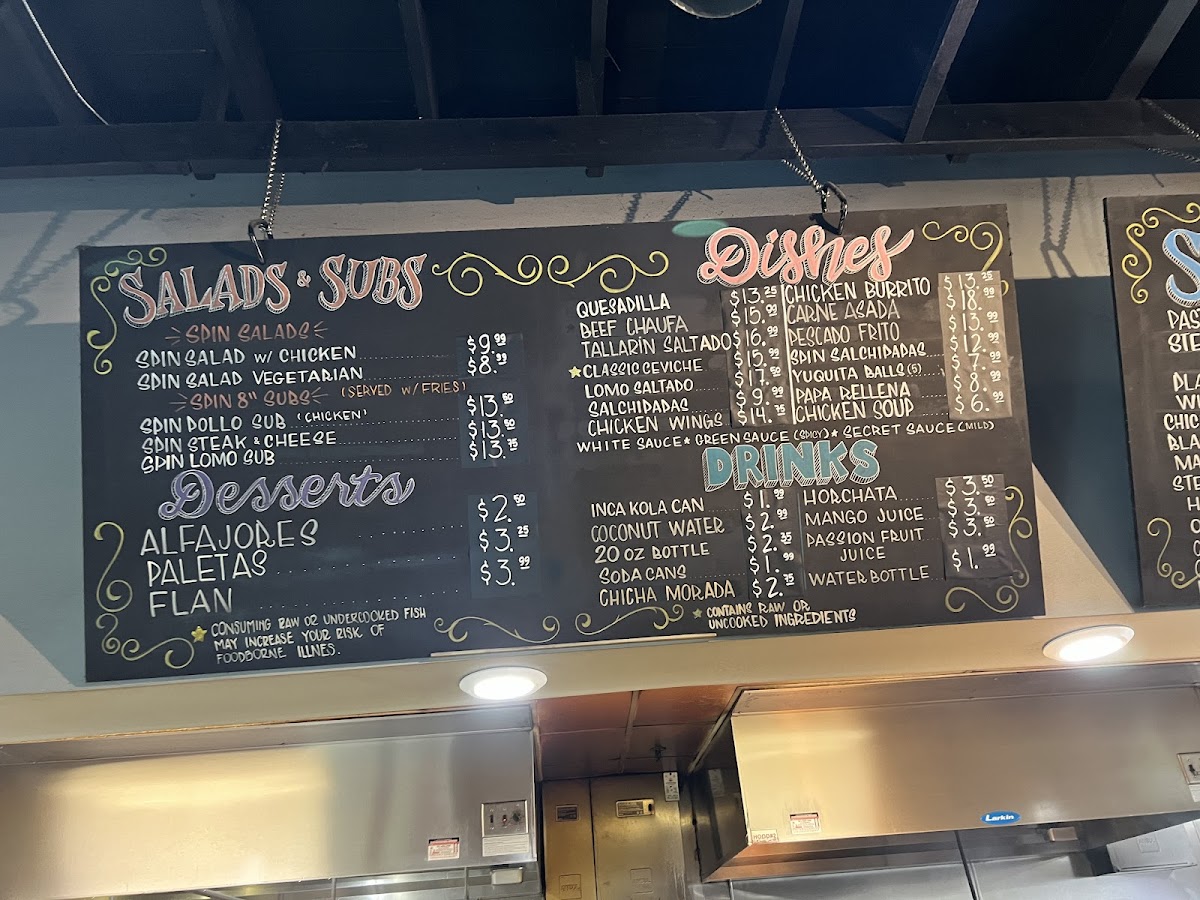 SALADS & SUBS
SPIN SALADS
SPIN SALAD W/ CHICKEN $9.99
SPIN SALAD VEGETARIAN $8.99
SPIN 8" SUBS (SERVED W/ FRIES)
SPIN POLLO SUB (CHICKEN) $13.50
SPIN STEAK & CHEESE $13.50
SPIN LOMO SUB $13.75
Desserts
ALFAJORES $2.50
PALETAS $3.25
FLAN $3.99
CONSUMING RAW OR UNDERCOOKED FISH
MAY INCREASE YOUR RISK OF
FOODBORNE ILLNES.
Dishes
QUESADILLA $13.25
BEEF CHAUFA $15.99
TALLARÍN SALTADO $16.99
CLASSIC CEVICHE $15.99
LOMO SALTADO $17.50
SALCHIPAPAS $9.99
CHICKEN WINGS $14.75
CHICKEN BURRITO $13.25
CARNE ASADA $18.99
PESCADO FRITO $13.99
SPIN SALCHIPAPAS $12.99
YUQUITA BALLS (5) $7.99
PAPA RELLENA $8.99
CHICKEN SOUP $6.99
WHITE SAUCE ★ GREEN SAUCE (SPICY) ★ SECRET SAUCE (MILD)
DRINKS
INCA KOLA CAN $1.99
COCONUT WATER $2.99
20 OZ BOTTLE $2.35
SODA CANS $1.99
CHICHA MORADA $2.75
HORCHATA $3.50
MANGO JUICE $3.50
PASSION FRUIT $3.50
JUICE
WATER BOTTLE $1.99
CONTAINS RAW OR
UNCOOKED INGREDIENTS
Larkin